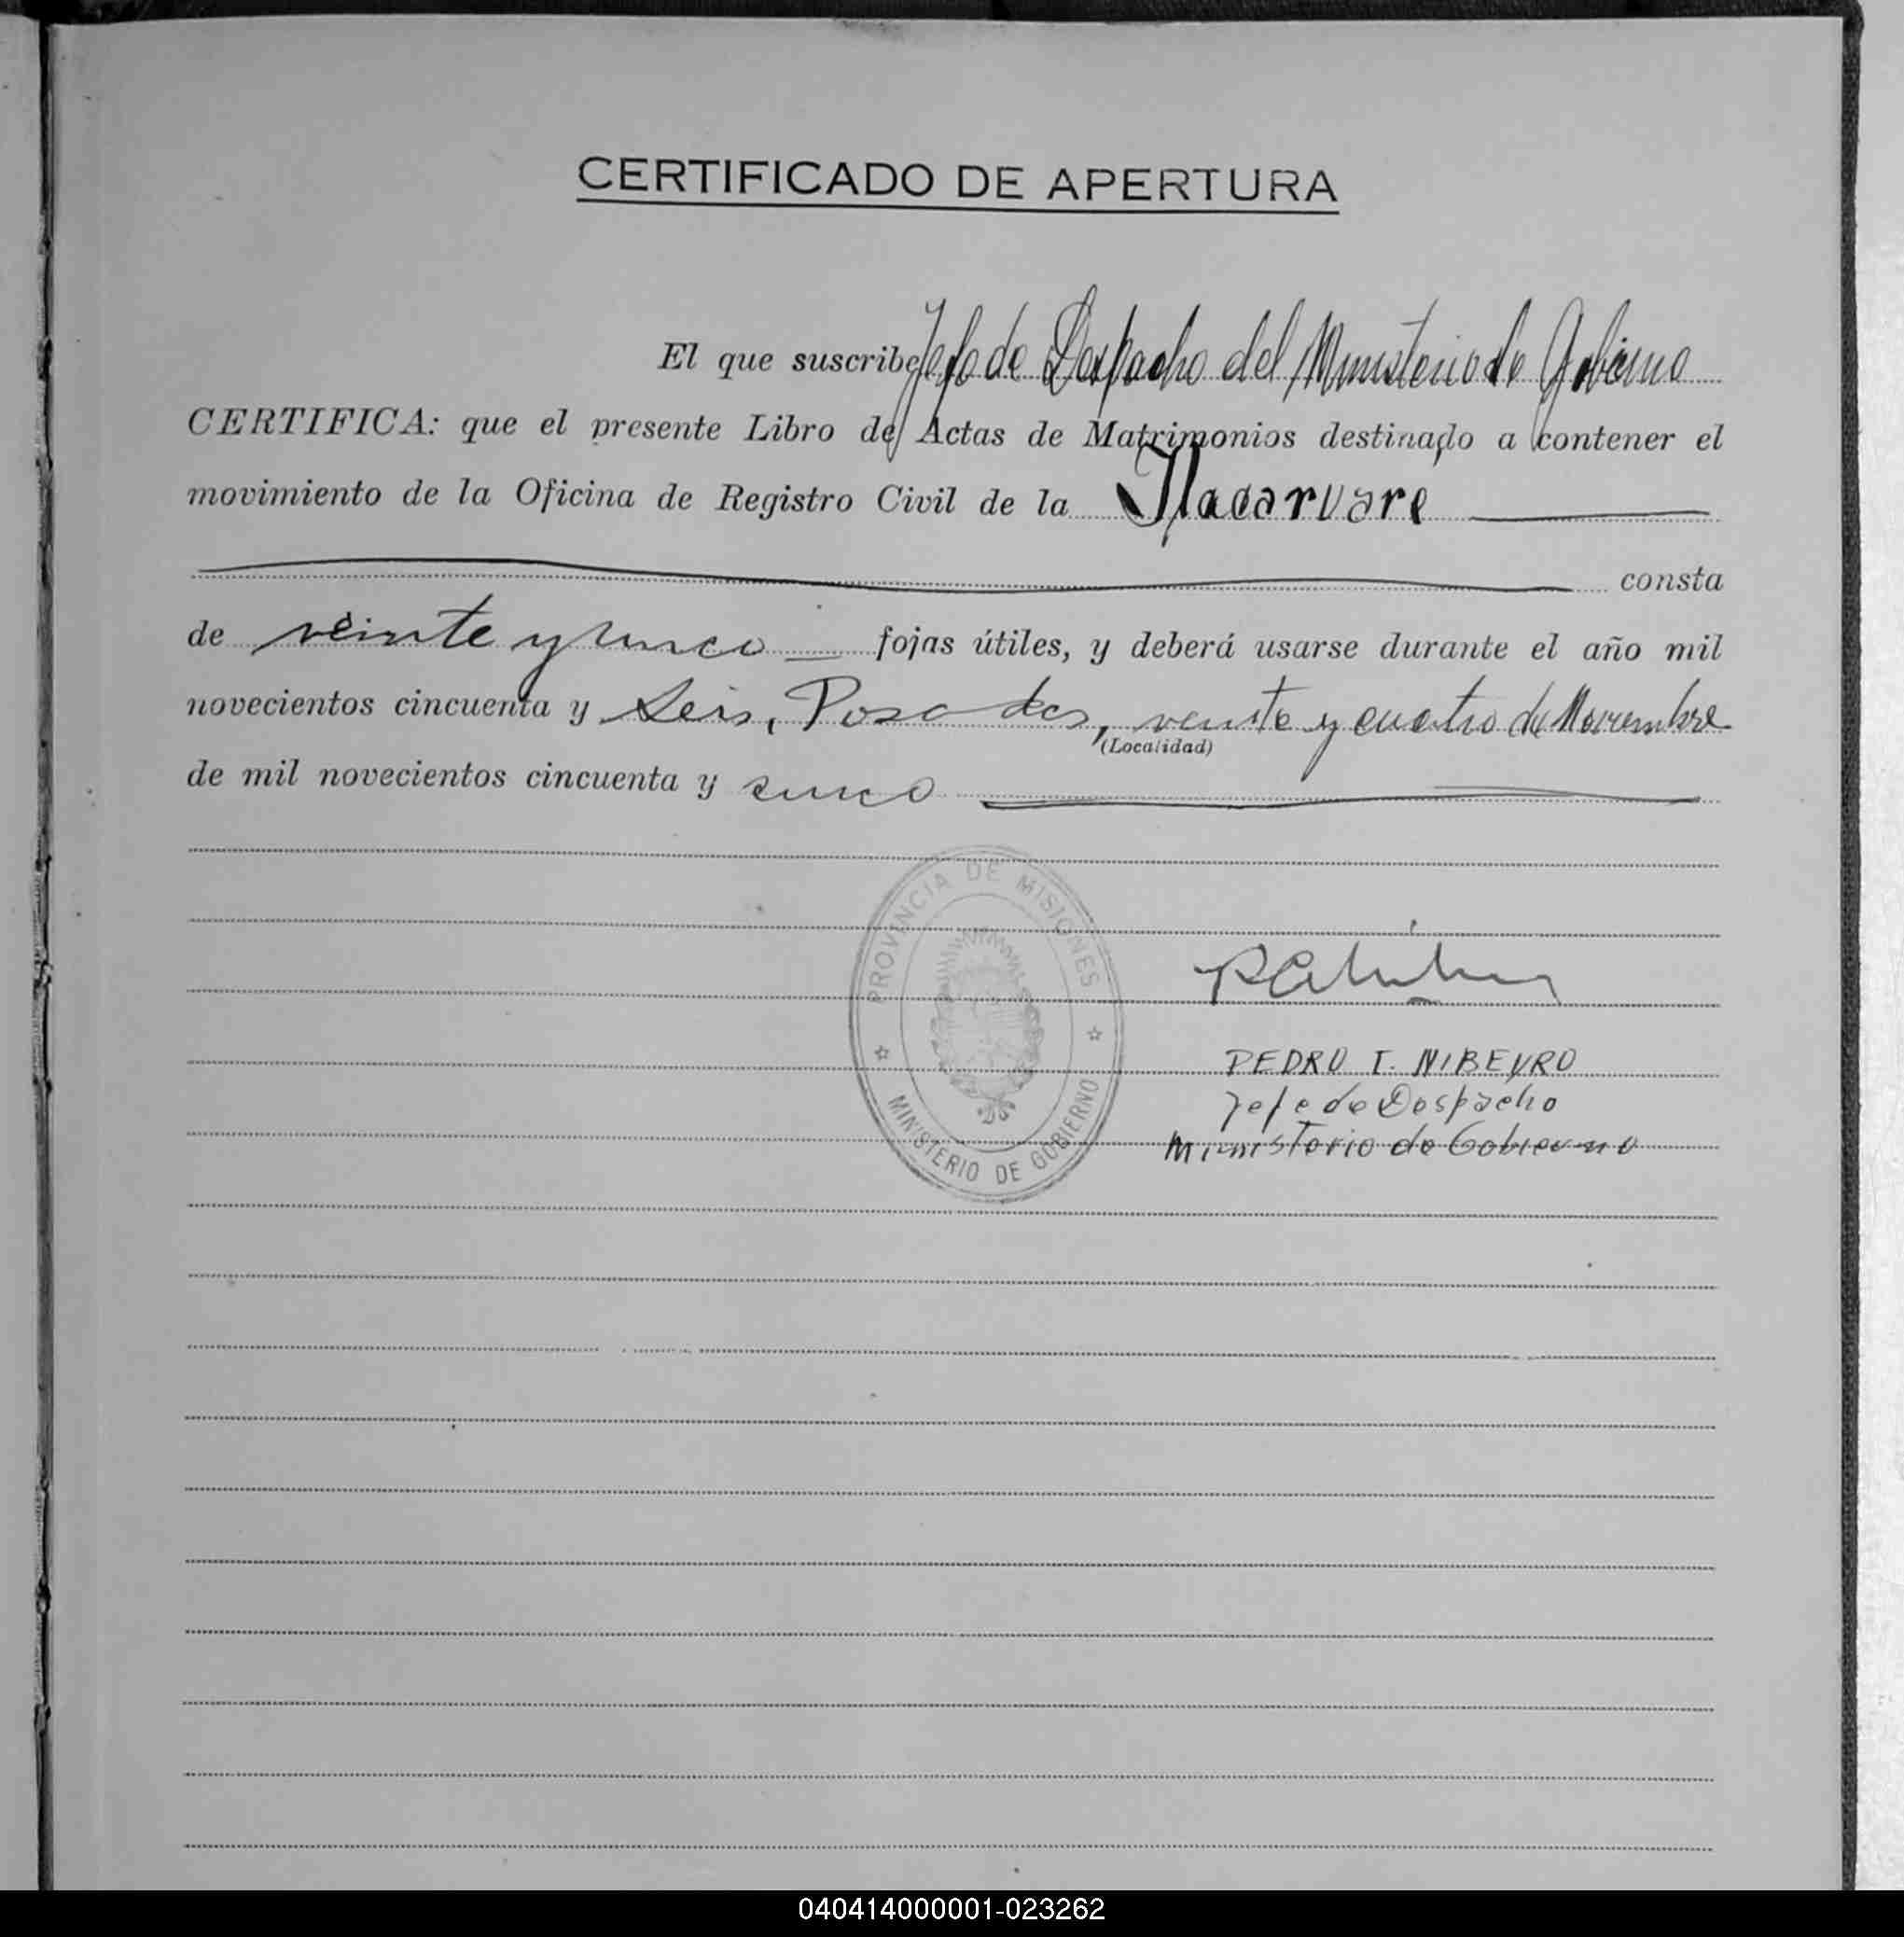 CERTIFICADO DE APERTURA
El que suscribe Jefe de Despacho del Ministerio de Gobierno
CERTIFICA: que el presente Libro de Actas de Matrimonios destinado a contener el
movimiento de la Oficina de Registro Civil de la Ñacarvare
consta
de veinte y cinco fojas útiles, y deberá usarse durante el año mil
novecientos cincuenta y seis, Posadas, veinte y cuatro de Noviembre
(Localidad)
de mil novecientos cincuenta y cinco
PROVINCIA DE MISIONES
MINISTERIO DE GOBIERNO
PEDRO I. NIBEYRO
Jefe de Despacho
Ministerio de Gobierno
040414000001-023262